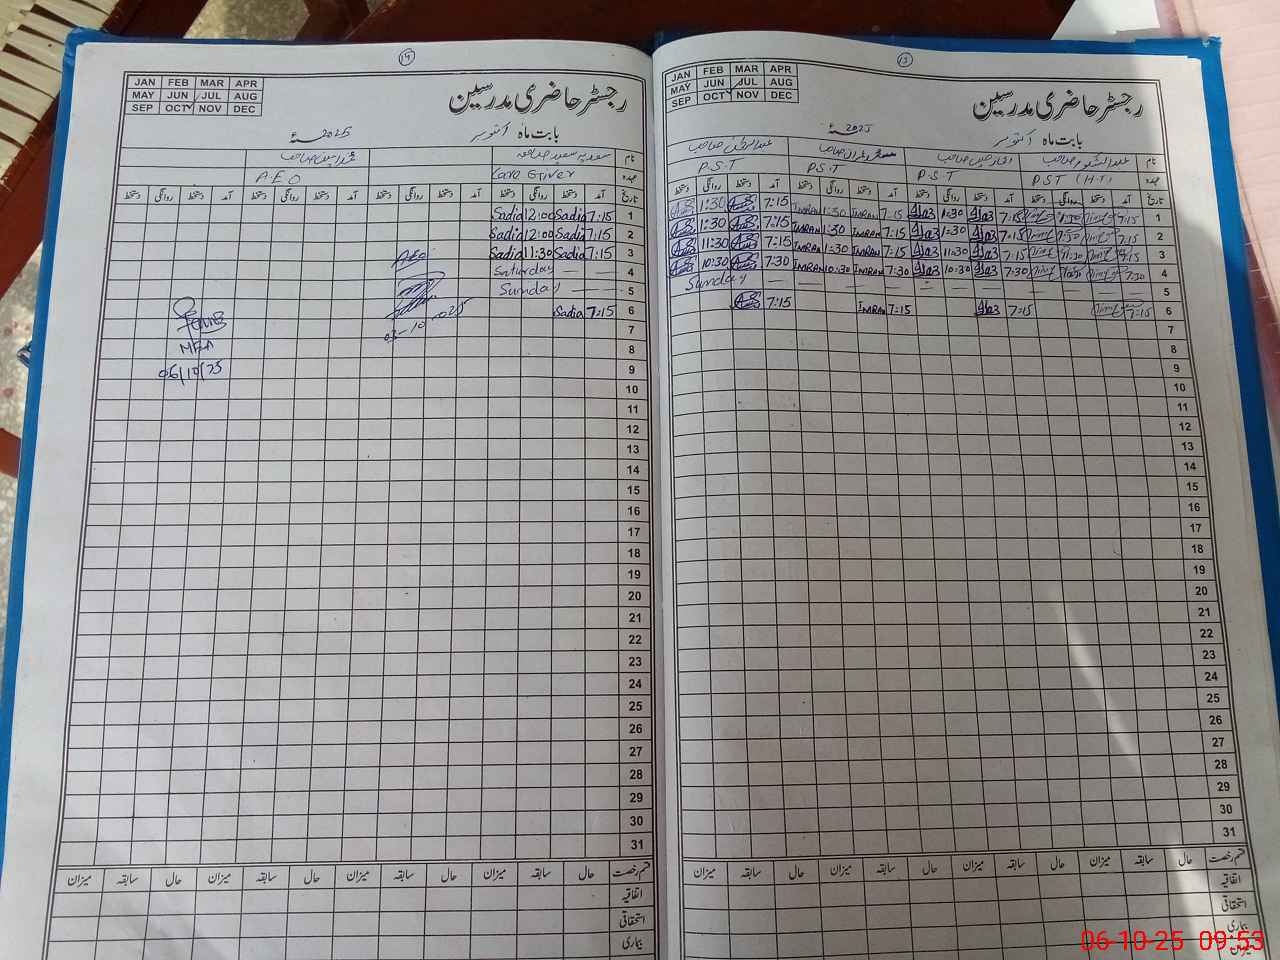 14
JAN FEB MAR APR
MAY JUN JUL AUG
SEP OCT NOV DEC
رجسٹر حاضری مدرسین
بابت ماہ اکتوبر 2025ء
نام سعدیہ سعید صاحبہ
عہدہ Care Giver A.E.O
تاریخ آمد دستخط روانگی دستخط آمد دستخط روانگی دستخط آمد دستخط روانگی دستخط آمد دستخط روانگی دستخط
1 7:15 Sadia 12:00 Sadia
2 7:15 Sadia 12:00 Sadia
3 7:15 Sadia 11:30 Sadia AEO
4 Saturday — —
5 Sunday — —
6 7:15 Sadia
03-10-025
7
8 MEA
9 06/10/25
10
11
12
13
14
15
16
17
18
19
20
21
22
23
24
25
26
27
28
29
30
31
قسم رخصت حال سابقہ میزان حال سابقہ میزان حال سابقہ میزان حال سابقہ میزان
اتفاقیہ
استحقاقی
بیماری
13
JAN FEB MAR APR
MAY JUN JUL AUG
SEP OCT NOV DEC
رجسٹر حاضری مدرسین
بابت ماہ اکتوبر 2025ء
نام
عہدہ PST (H.T) P.S.T P.S.T P.S.T
تاریخ آمد دستخط روانگی دستخط آمد دستخط روانگی دستخط آمد دستخط روانگی دستخط آمد دستخط روانگی دستخط
1 7:15 1:30 7:15 1:30 7:15 IMRAN 1:30 IMRAN 7:15 1:30
2 7:15 1:30 7:15 1:30 7:15 IMRAN 1:30 IMRAN 7:15 1:30
3 7:15 11:30 7:15 11:30 7:15 IMRAN 11:30 IMRAN 7:15 11:30
4 7:30 10:30 7:30 10:30 7:30 IMRAN 10:30 IMRAN 7:30 10:30
5 Sunday — — — — — —
6 7:15 7:15 7:15 IMRAN 7:15
7
8
9
10
11
12
13
14
15
16
17
18
19
20
21
22
23
24
25
26
27
28
29
30
31
قسم رخصت حال سابقہ میزان حال سابقہ میزان حال سابقہ میزان حال سابقہ میزان
اتفاقیہ
استحقاقی
بیماری
میزان
06-10-25 09:53